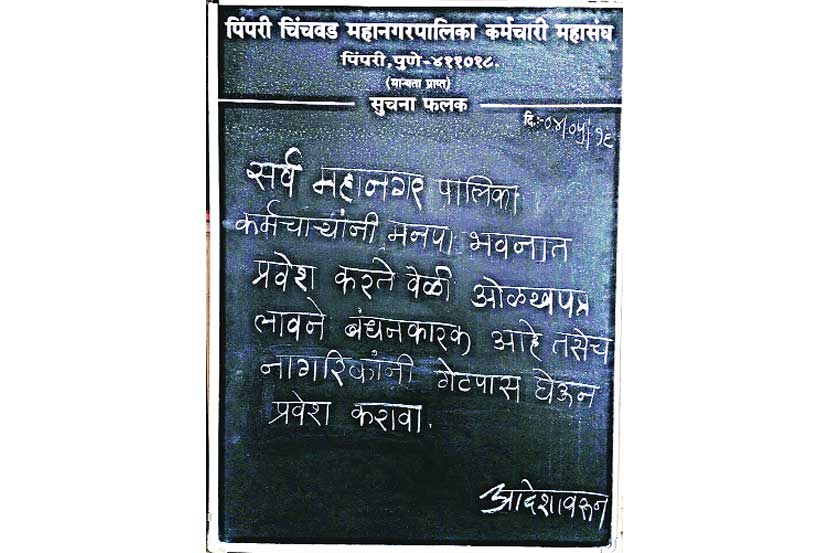 पिंपरी चिंचवड महानगरपालिका कर्मचारी महासंघ
पिंपरी, पुणे-४११०१८.
(मान्यता प्राप्त)
सुचना फलक
दि:-०४/०५/१६
सर्व महानगर पालिका
कर्मचाऱ्यांनी मनपा भवनात
प्रवेश करते वेळी ओळखपत्र
लावने बंधनकारक आहे तसेच
नागरिकांनी गेटपास घेऊन
प्रवेश करावा.
आदेशावरून